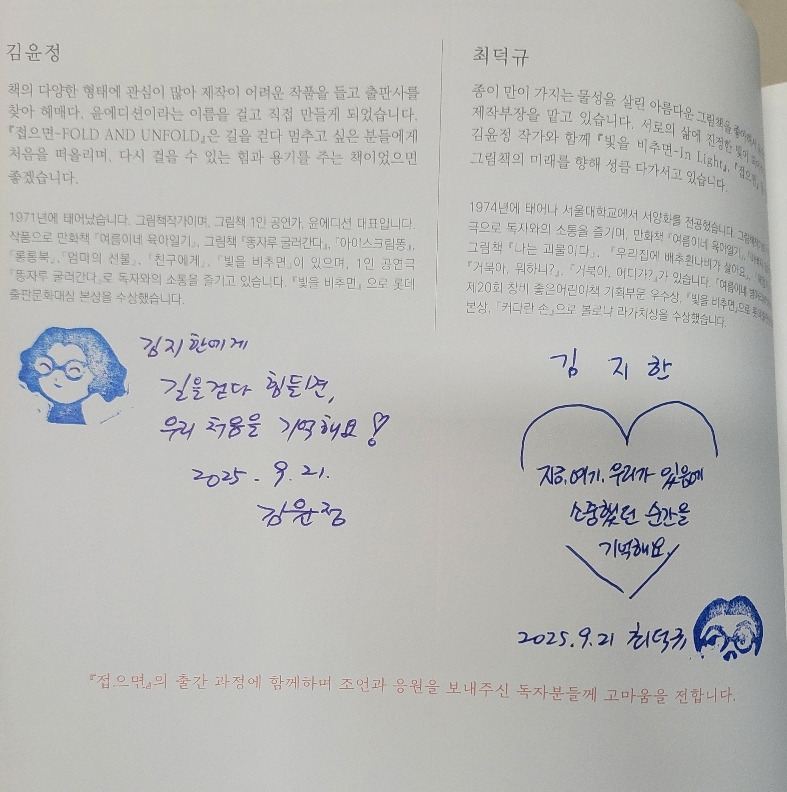 김윤정
책의 다양한 형태에 관심이 많아 제작이 어려운 작품을 들고 출판사를
찾아 헤매다. 윤에디션이라는 이름을 걸고 직접 만들게 되었습니다.
『접으면-FOLD AND UNFOLD』은 길을 걷다 멈추고 싶은 분들에게
처음을 떠올리며, 다시 걸을 수 있는 힘과 용기를 주는 책이었으면
좋겠습니다.
1971년에 태어났습니다. 그림책작가이며, 그림책 1인 공연가, 윤에디션 대표입니다.
작품으로 만화책 『여름이네 육아일기』, 그림책 『똥자루 굴러간다』, 『아이스크림똥』,
『통통북』, 『엄마의 선물』, 『친구에게』, 『빛을 비추면』이 있으며, 1인 공연극
『똥자루 굴러간다』로 독자와의 소통을 즐기고 있습니다. 『빛을 비추면』으로 롯데
출판문화대상 본상을 수상했습니다.
김지한에게
길을걷다 힘들면,
우리 처음을 기억해요!
2025. 9. 21.
김윤정
최덕규
종이 만이 가지는 물성을 살린 아름다운 그림책을
제작부장을 맡고 있습니다. 서로의 삶에 진정한 빛이
김윤정 작가와 함께 『빛을 비추면-In Light』, 『접으면
그림책의 미래를 향해 성큼 다가서고 있습니다.
1974년에 태어나 서울대학교에서 서양화를 전공했습니다.
극으로 독자와의 소통을 즐기며, 만화책 『여름이네 육아일기』,
그림책 『나는 괴물이다』, 『우리집에 배추흰나비가 살아요』,
『거북아, 뭐하니?』, 『거북아, 어디가?』가 있습니다. 『여름이네
제20회 창비 좋은어린이책 기획부문 우수상, 『빛을 비추면』으로
본상, 『커다란 손』으로 볼로냐 라가치상을 수상했습니다.
김 지 한
지금, 여기, 우리가 있음에
소중했던 순간을
기억해요.
2025. 9. 21 최덕규
『접으면』의 출간 과정에 함께하며 조언과 응원을 보내주신 독자분들께 고마움을 전합니다.